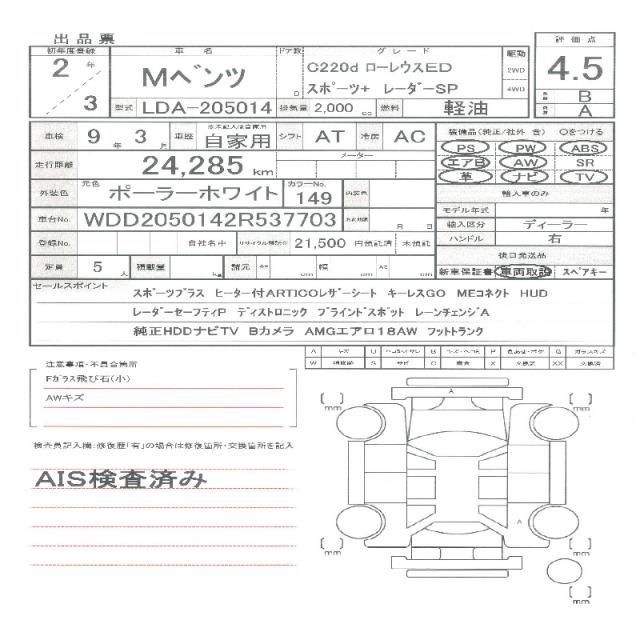 出品票
初年度登録 車名 ドア数 グレード 駆動 評価点
2年 3 Mベンツ D C220d ローレウスED スポーツ+ レーダーSP 2WD 4WD 4.5
型式 LDA-205014 排気量 2,000 cc 燃料 軽油 B A
車検 9年 3月 車歴 自家用 シフト AT 冷房 AC
装備品(純正/社外 含) Oをつける
PS PW ABS
エアB AW SR
革 ナビ TV
走行距離 24,285 km メーター
外装色 元色 ポーラーホワイト カラーNo. 149 内装色
輸入車のみ
モデル年式 年
輸入区分 ディーラー
ハンドル 右
車台No. WDD2050142R537703
登録No. 自社名中 リサイクル預託金 21,500 円預託済 未預託
後日発送品
新車保証書 車両取説 スペアキー
定員 5人 積載量 kg 諸元 cm 幅 cm cm
セールスポイント
スポーツプラス ヒーター付ARTICOレザーシート キーレスGO MEコネクト HUD
レーダーセーフティP ディストロニック ブラインドスポット レーンチェンジA
純正HDDナビTV Bカメラ AMGエアロ18AW フットランク
A キズ U B P G ガラスキズ
W S サビ C 腐食 X XX
注意事項・不具合箇所
Fガラス飛び石(小)
AWキズ
検査員記入欄:修復歴「有」の場合は修復箇所・交換箇所を記入
AIS検査済み
A
A
mm
mm
mm
mm
mm